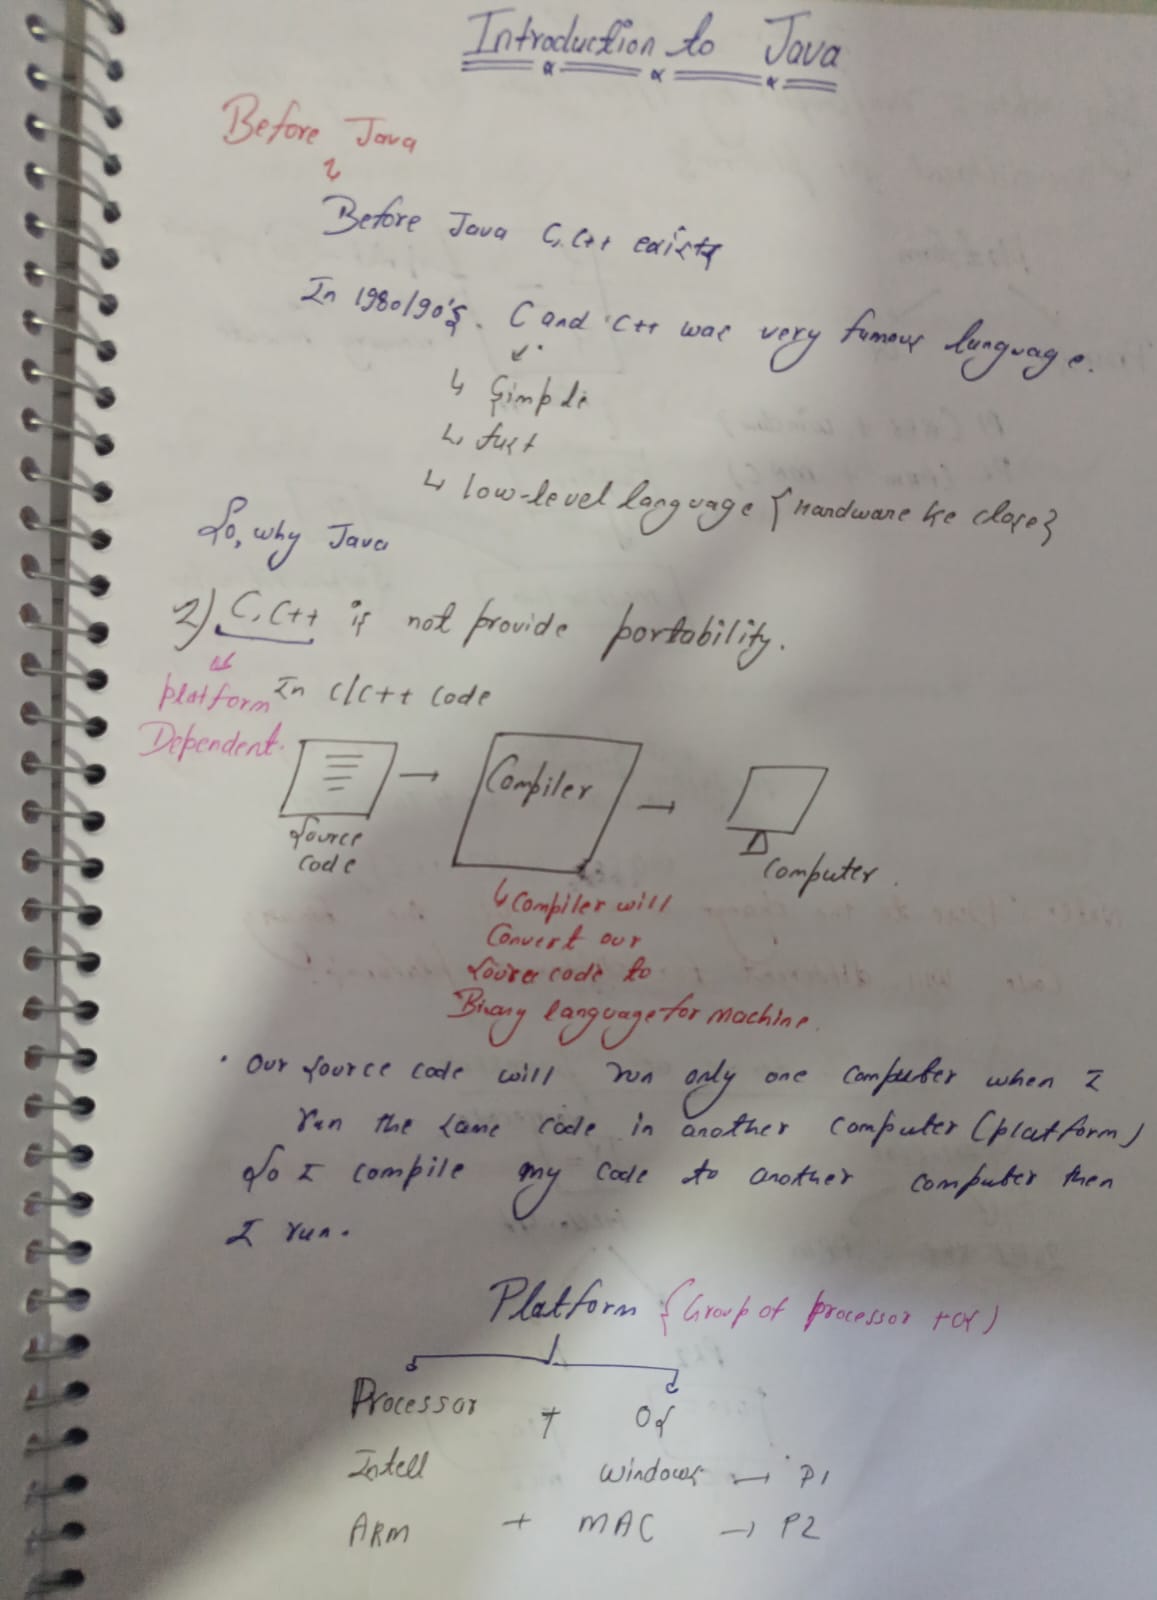 Introduction to Java
Before Java
Before Java C, C++ exists
In 1980/90's. C and C++ was very famous language.
↳ Simple
↳ fast
↳ low-level language {Hardware ke close}
So, why Java
1) C, C++ is not provide portability.
platform
Dependent.
In C/C++ code
Source
code
Compiler
Computer.
↳ Compiler will
Convert our
Source code to
Binary language for machine.
• Our source code will run only one computer when I
run the same code in another computer (platform)
So I compile my code to another computer then
I run.
Platform {Group of processor + OS)
Processor + OS
Intell windows → P1
ARM + MAC → P2